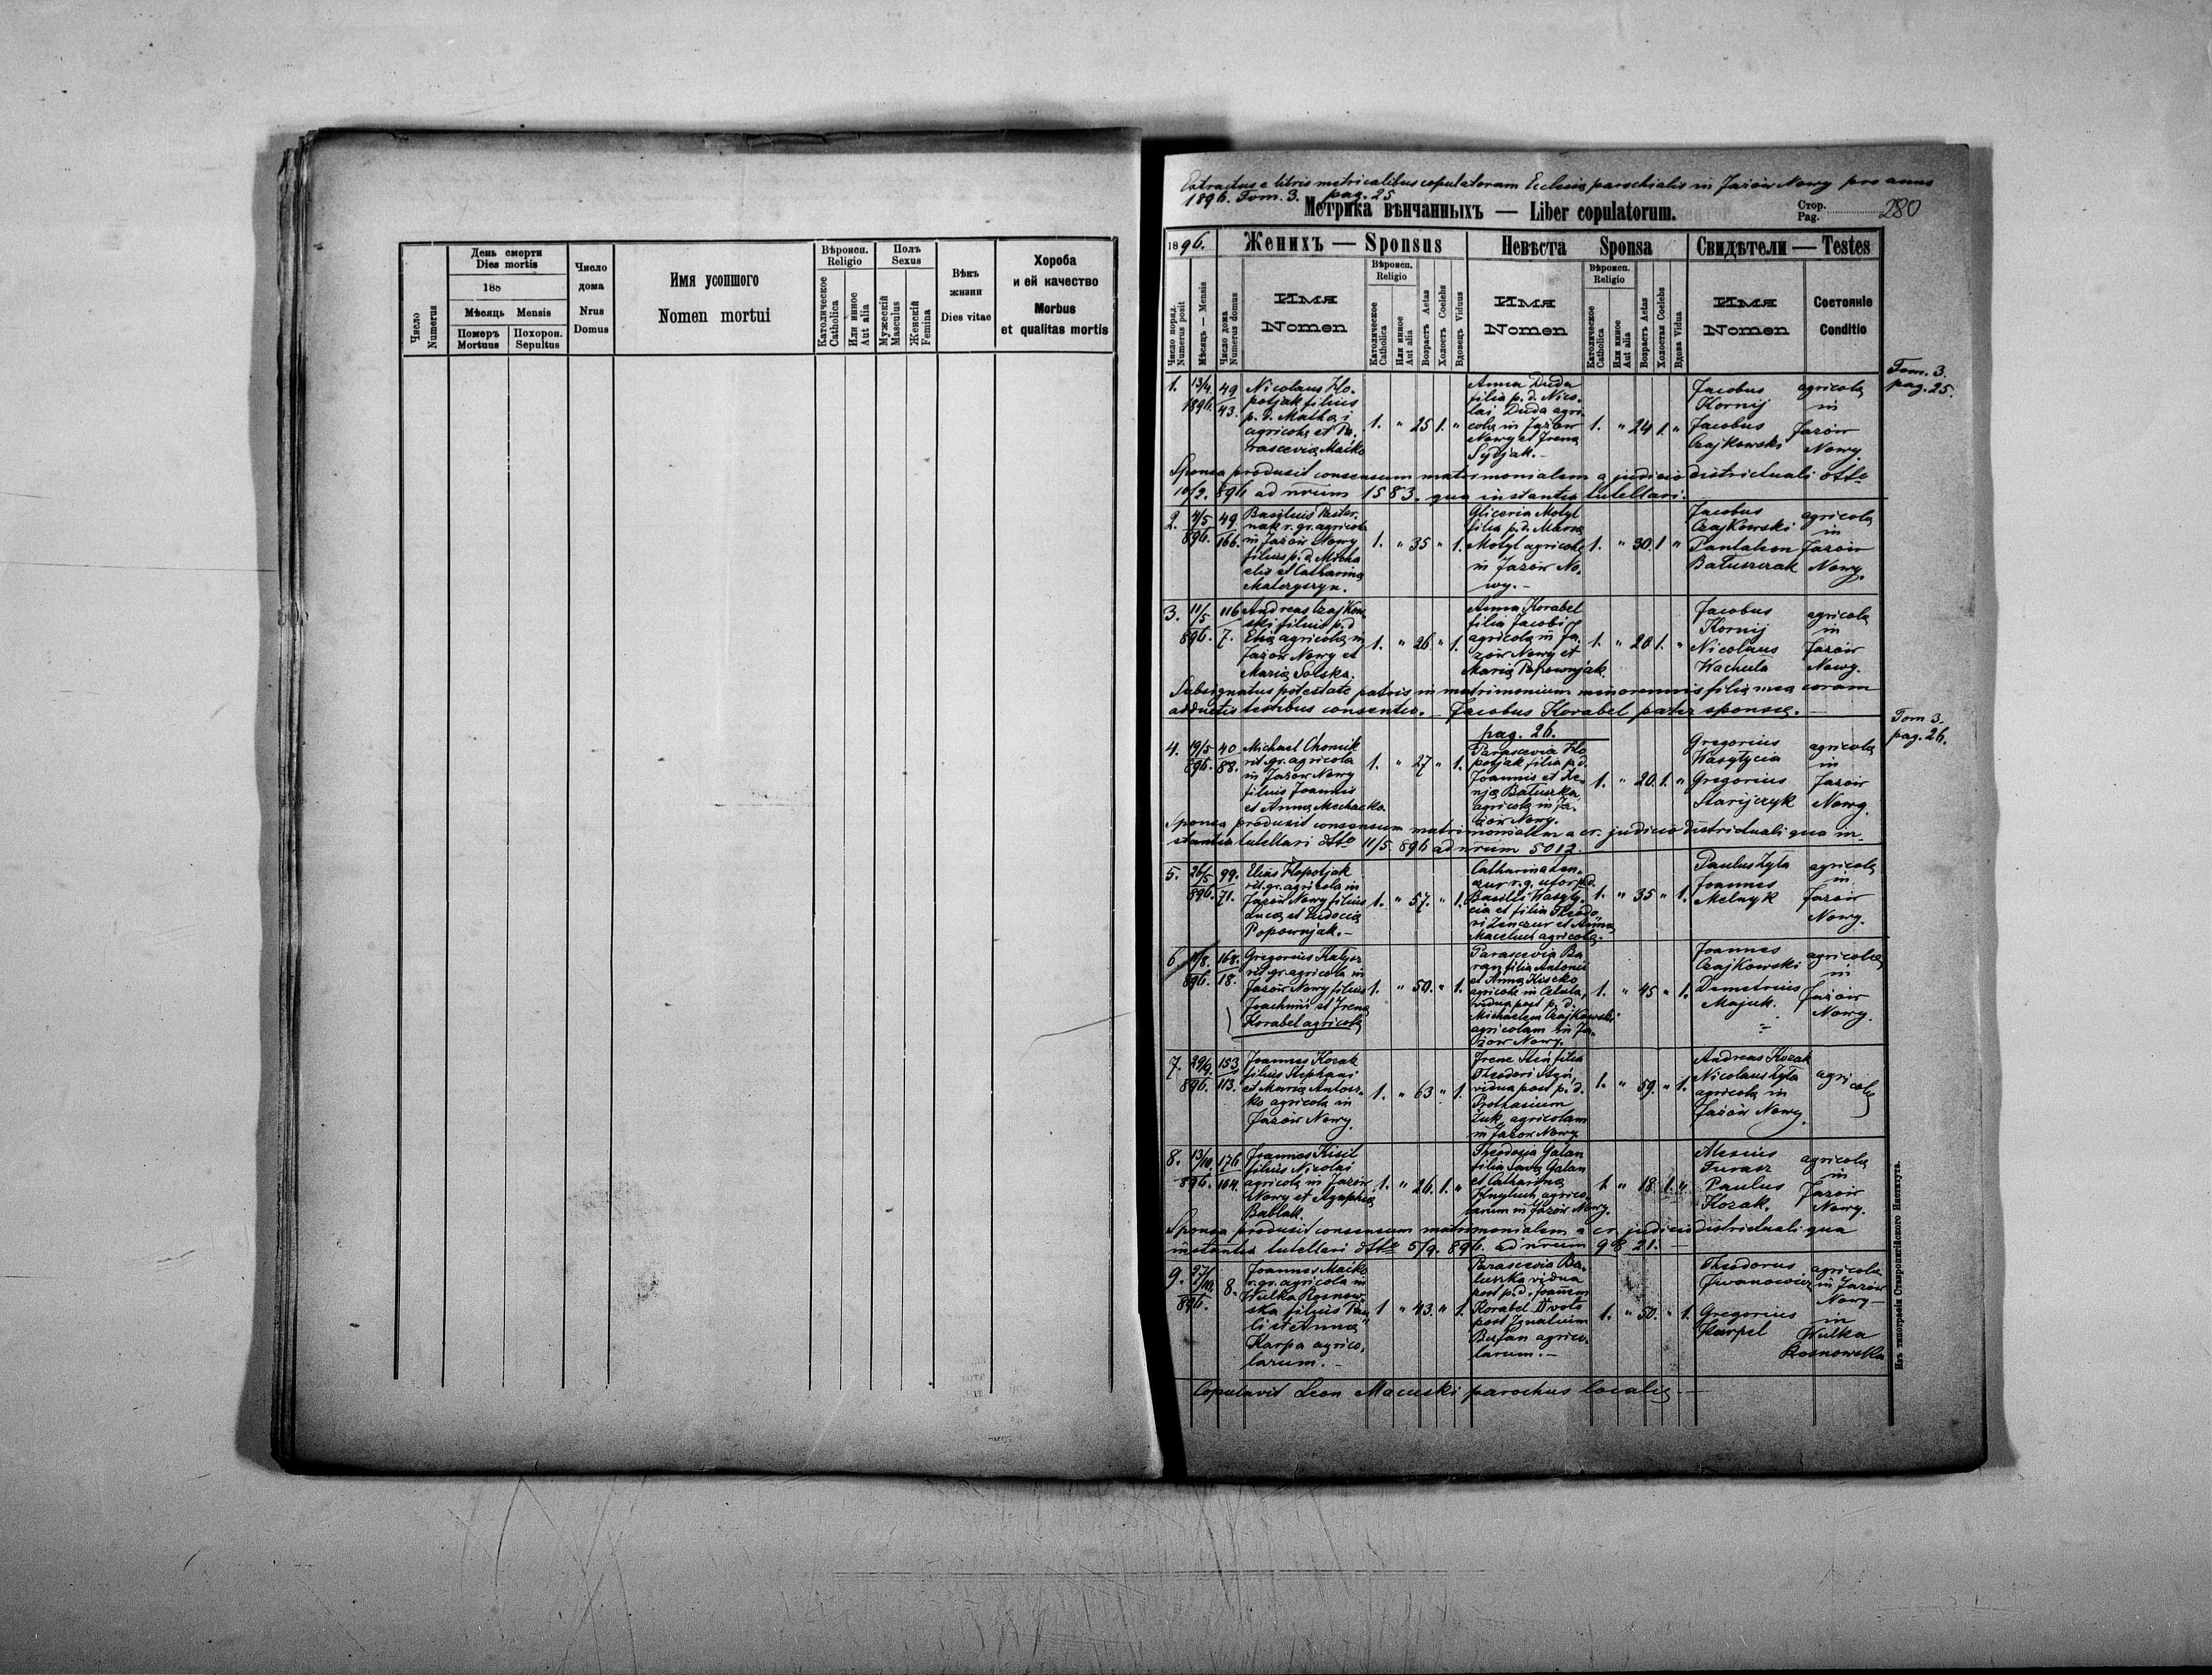 Число
Numerus
День смерти
Dies mortis
188
Мѣсяць Mensis
Померъ
Mortuus
Похорон.
Sepultus
Число
дома
Nrus
Domus
Имя усопшого
Nomen mortui
Вѣроисп.
Religio
Католическое
Catholica
Или инное
Aut alia
Полъ
Sexus
Мужескій
Masculus
Женскій
Femina
Вѣкъ
жизни
Dies vitae
Хороба
и ей качество
Morbus
et qualitas mortis
Extractus e libris metricalibus copulatorum Ecclesiæ parochialis in Jazów Nowy pro anno
1896. Tom. 3. pag. 25
Метрика вѣнчанныхъ — Liber copulatorum.
Стор.
Pag. 280
1896.
Женихъ — Sponsus
Невѣста Sponsa
Свидѣтели — Testes
Число поряд.
Numerus posit
Мѣсяць — Mensis
Число дома
Numerus domus
Имя
Nomen
Вѣроисп.
Religio
Католическое
Catholica
Или инное
Aut alia
Возрастъ Aetas
Холостъ Coelebs
Вдовецъ Viduus
Имя
Nomen
Вѣроисп.
Religio
Католическое
Catholica
Или инное
Aut alia
Возрастъ Aetas
Холостая Coelebs
Вдова Vidua
Имя
Nomen
Состояніе
Conditio
Tom. 3.
pag. 25.
1. 13/4 1896. 49/43.
Nicolaus Kło-
potjak filius
p. d. Mathæi
agricolæ et Pa-
rasceviæ Maćko
1. " 25 1. "
Anna Duda
filia p. d. Nico-
lai Duda agri-
colæ in Jazów
Nowy et Irenæ
Sydjak.-
1. " 24 1. "
Jacobus
Kornij
Jacobus
Czajkowski
agricolæ
in
Jazów
Nowy.
Sponsa produxit consensum matrimonialem a judicio districtuali dtto
10/2. 896 ad nrum 1583. qua instantia tutellari.
2. 4/5 896. 49/166.
Basilius Paster-
nak r. gr. agricola
in Jazów Nowy
filius p. d. Micha
elis et Catharinæ
Materyszyn.
1. " 35 " 1.
Gliceria Motyl
filia p. d. Mariæ
Motyl agricolæ
in Jazów No-
wy.-
1. " 30. 1 "
Jacobus
Czajkowski
Pantaleon
Batuszczak
agricolæ
in
Jazów
Nowy.
3. 11/5 896. 116/7.
Andreas Czajkow-
ski filius p. d
Eliæ agricolæ in
Jazów Nowy et
Mariæ Solska.
1. " 26. " 1.
Anna Korabel
filia Jacobi
agricolæ in Ja-
zów Nowy et
Mariæ Popownjak.
1. " 20 1. "
Jacobus
Kornij
Nicolaus
Wachula
agricolæ
in
Jazów
Nowy.
Subsignatus potestate patris in matrimonium minorennis filiæ meæ coram
adductis testibus consentio. - Jacobus Korabel pater sponsæ. -
pag. 26.
Tom 3.
pag. 26.
4. 19/5 896. 40/88.
Michael Chomik
rit. gr. agricola
in Jazów Nowy
filius Joannis
et Annæ Mechacko.
1. " 27 " 1.
Parascevia Kło
potjak filia p. d.
Joannis et Xe-
niæ Batuszka
agricolæ in Ja-
zów Nowy.
1. " 20. 1. "
Gregorius
Wasylycia
Gregorius
Starijczyk
agricolæ
in
Jazów
Nowy.
Sponsa produxit consensum matrimonialem a cr. judicio districtuali qua in-
stantia tutellari dtto 11/5. 896 ad nrum 5012.
5. 26/5 896. 99./71.
Elias Kłopotjak
rit. gr. agricola in
Jazów Nowy filius
Lucæ et Eudociæ
Popownjak.-
1. " 57. " 1.
Catharina Zen-
czur r. g. uxor p. d.
Basilii Wasyly-
cia et filia Theodo-
ri Zenczur et Annæ
Maceluch agricolæ.
1. " 35 " 1.
Paulus Zyła
Joannes
Melnyk
agricolæ
in
Jazów
Nowy.
6. 11/8. 896. 168./18.
Gregorius Kałycz
rit. gr. agricola in
Jazów Nowy filius
Joachimi et Irenæ
Korabel agricolæ
1. " 50. " 1.
Parascevia Ba
ran filia Antonii
et Annæ Kiszko
agricolæ in Cetula,
vidua post p. d.
Michaelem Czajkowski
agricolam in Ja-
zów Nowy.
1. " 45 " 1.
Joannes
Czajkowski
Demetrius
Majuk.
agricolæ
in
Jazów
Nowy.
7. 29/9. 896. 153/113.
Joannes Kozak
filius Stephani
et Mariæ Antosz-
ko agricolæ in
Jazów Nowy.
1. " 63 " 1.
Irene Steń filia
Theodori Steń,
vidua post p. d.
Prothasium
Zuk, agricolam
in Jazów Nowy
1. " 59. " 1.
Andreas Kozak
Nicolaus Zyła
agricolæ in
Jazów Nowy.
agricolæ
8. 13/10. 896. 176/104.
Joannes Kisil
filius Nicolai
agricolæ in Jazów
Nowy et Agaphiæ
Bablak.
1. " 26. 1. "
Theodosia Gałan
filia Savæ Gałan
et Catharinæ
Hnyluch agrico-
larum in Jazów Nowy.
1. " 18 1. "
Alexius
Turasz
Paulus
Kozak.
agricolæ
in
Jazów
Nowy.
Sponsa produxit consensum matrimonialem a cr. judicio districtuali qua
instantia tutellari dtto 5/9. 896. ad nrum 9821. -
9. 27/10. 896. 8.
Joannes Maćko
r. gr. agricola in
Wulka Rosnow-
ska filius Pau
li et Annæ
Karpa agrico-
larum.-
1 " 43. " 1.
Parascevia Ba-
łuszka vidua
post p. d. Joannem
Korabel II voto
post Ignatium
Bufan agrico-
larum.-
1. " 50. " 1.
Theodorus
Iwanowicz
Gregorius
Karpel
agricolæ
in Jazów
Nowy-
in
Wulka
Rosnowska
Copulavit Leon Macuski parochus localis -
Изъ типографіи Ставропигійского Института.